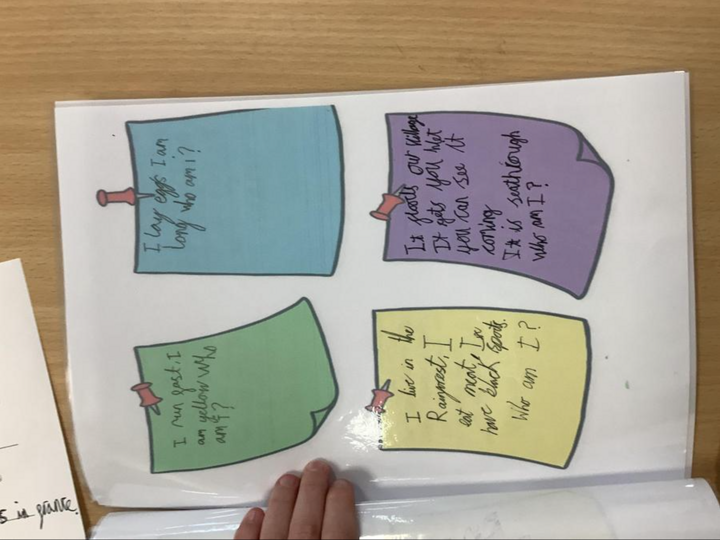 I run fast, I
am yellow who
am I?
I lay eggs I am
long who am i?
I live in the
Rainrest, I
eat meat, I
have black spots.
Who am I?
It floods our village
It gets you wet
you can see it
coming
It is seathrough
who am I?
in